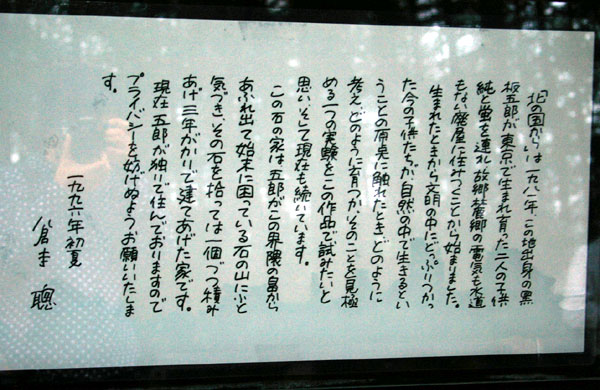 「北の国から」は一九八一年、この地出身の黒
板五郎が、東京で生まれ育った二人の子供
純と蛍を連れ、故郷麓郷の電気も水道
もない廃屋に住みつくことから始まりました。
生まれたときから文明の中にどっぷりつかっ
た今の子供たちが、自然の中で生きるとい
うことの原点に触れたとき、どのように
考え、どのように育つか。そのことを見極
める一つの実験をこの作品で試みたいと
思い、そして現在も続いています。
この石の家は五郎がこの界隈の畠から
あふれ出て始末に困っている石の山にふと
気づき、その石を拾っては一個づつ積み
あげ、三年がかりで建てあげた家です。
現在、五郎が独りで住んでおりますので
プライバシーを妨げぬようお願いいたしま
す。
一九九六年初夏
倉本 聰